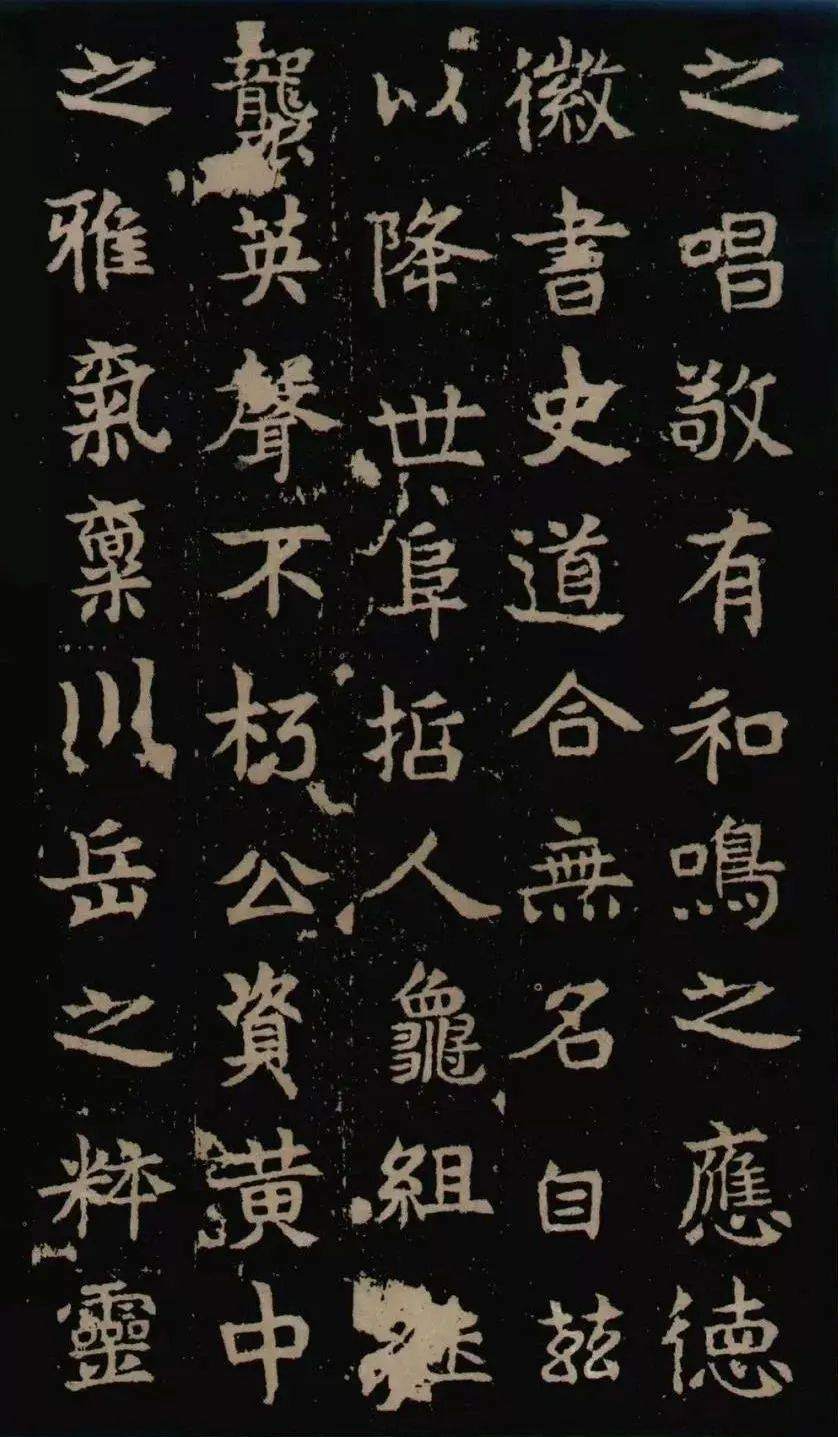 之唱敬有和鳴之應德
徽書史道合無名自茲
以降世阜哲人龜組
英聲不朽公資黃中
之雅氣稟川岳之粹靈